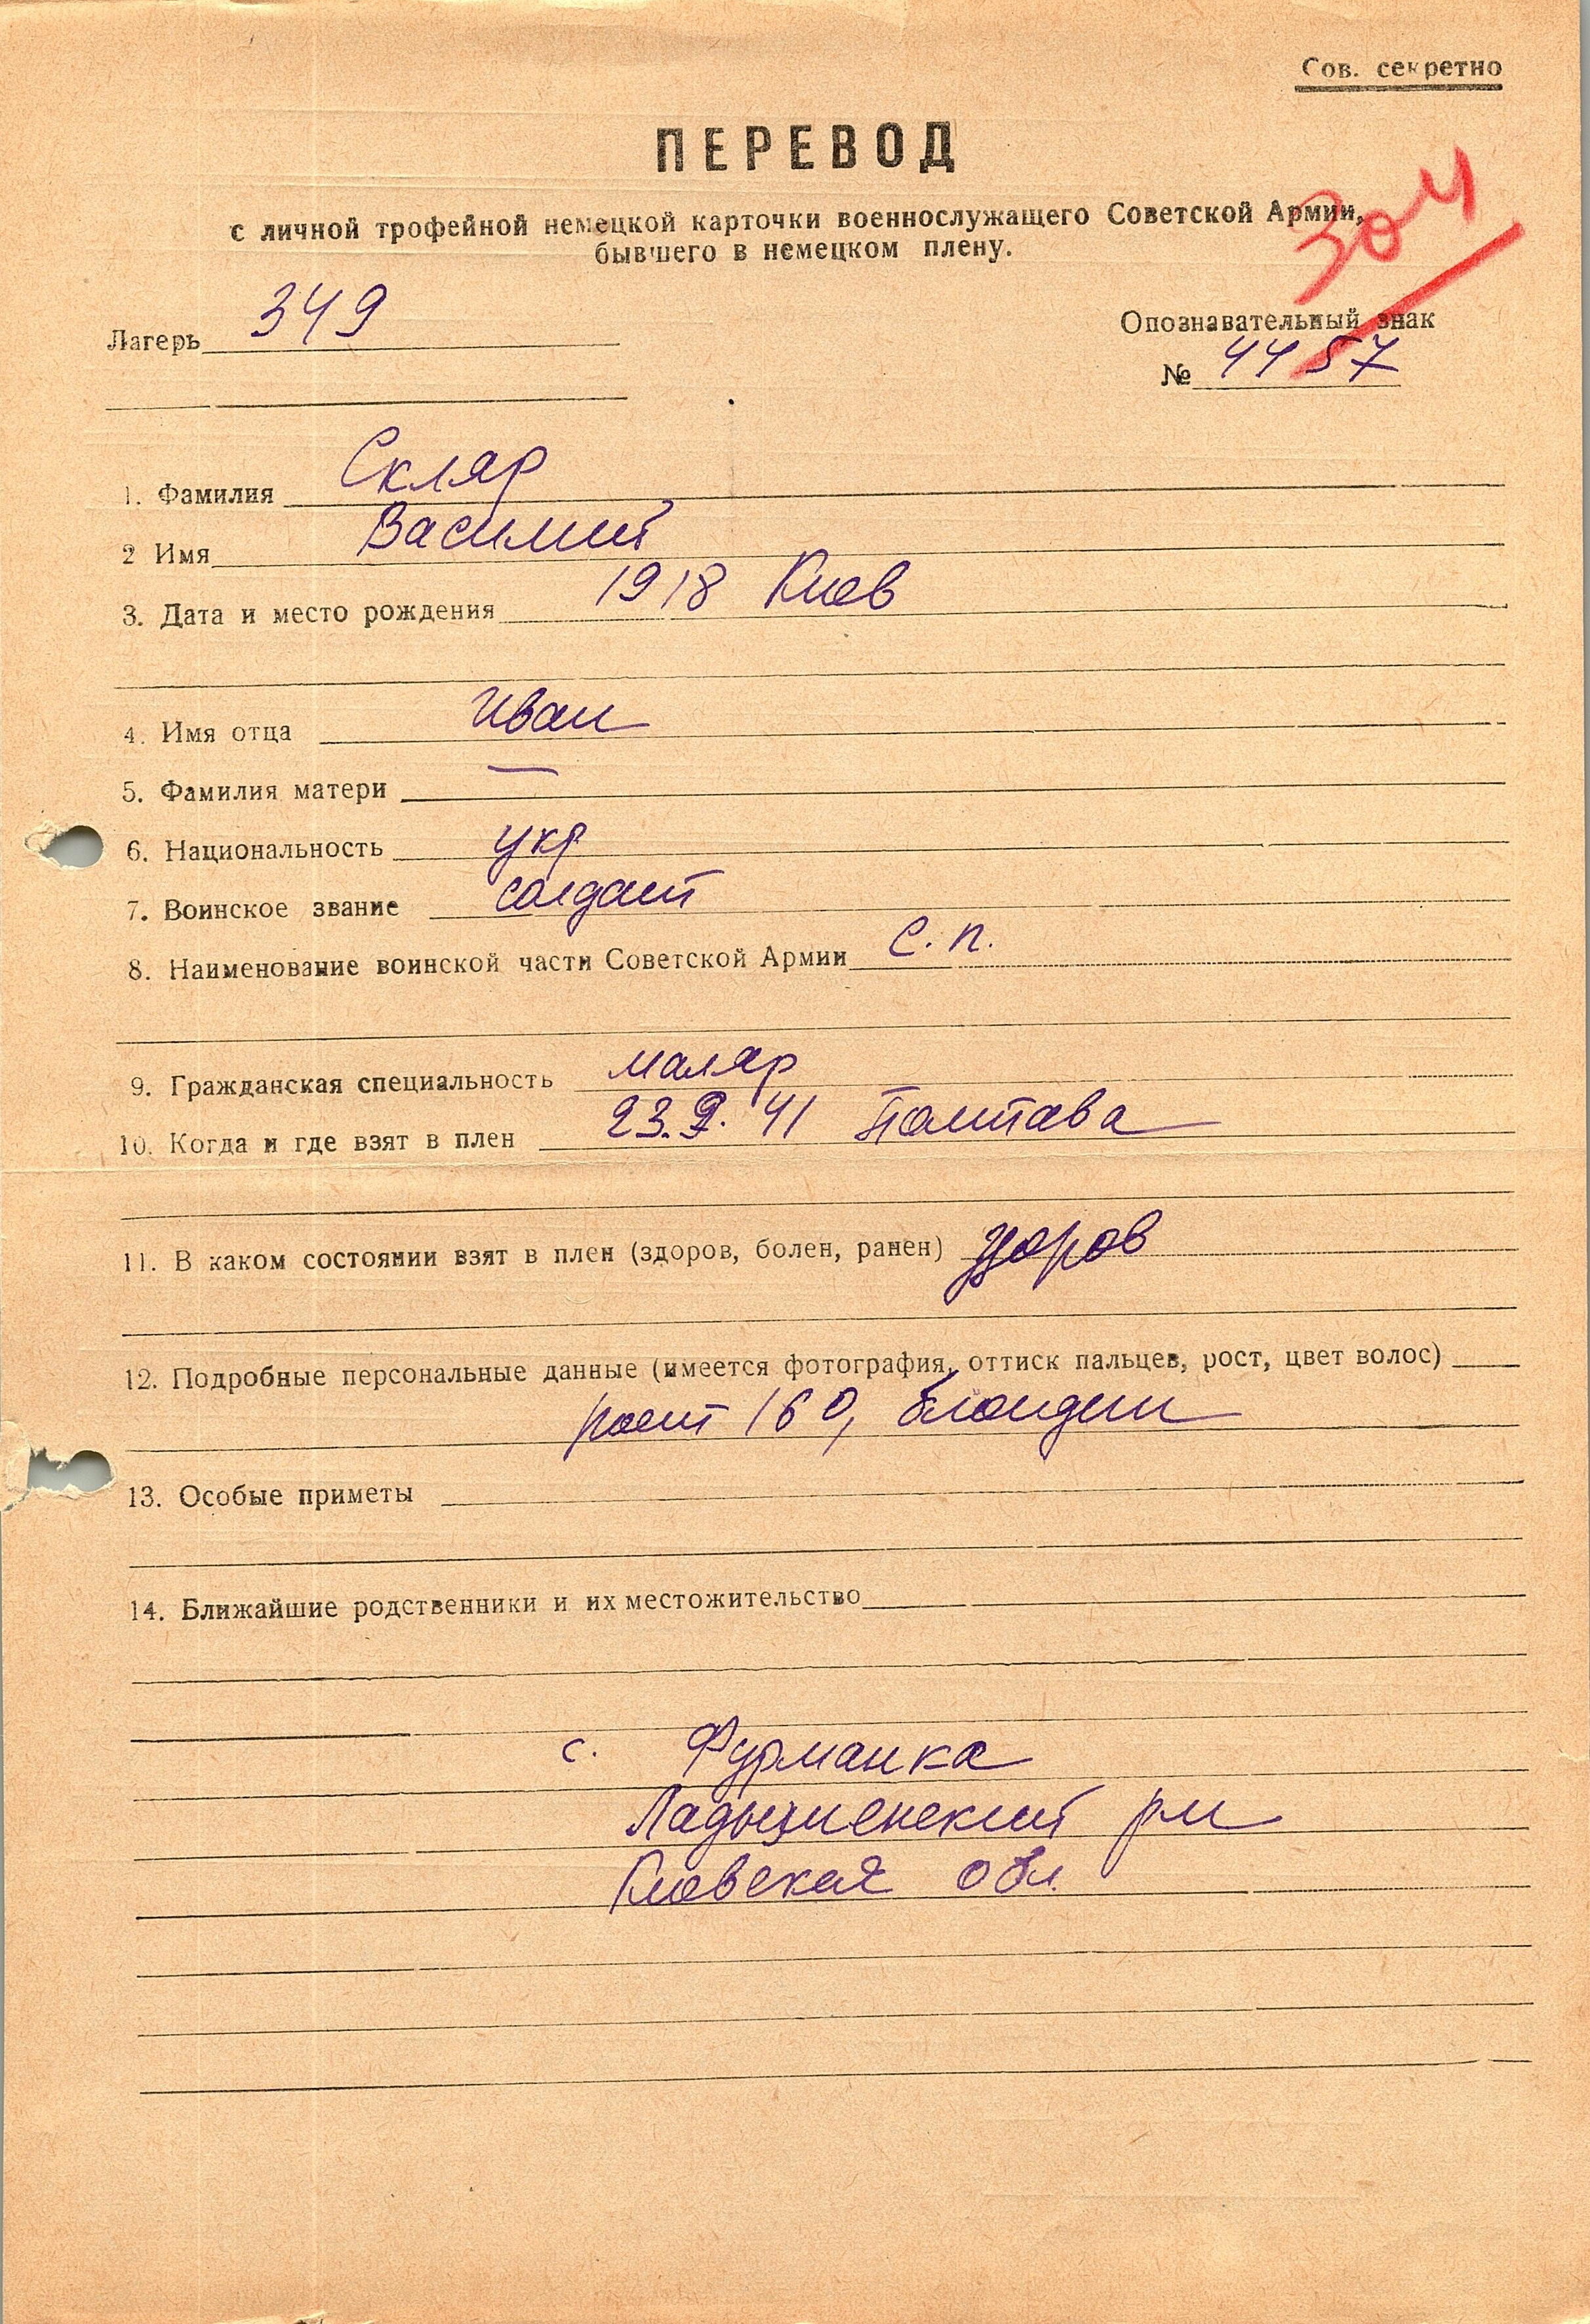 Сов. секретно
ПЕРЕВОД
с личной трофейной немецкой карточки военнослужащего Советской Армии,
бывшего в немецком плену.
304
Лагерь 349
Опознавательный знак
№ 4457
1. Фамилия Скляр
2 Имя Василий
3. Дата и место рождения 1918 Киев
4. Имя отца Иван
5. Фамилия матери —
6. Национальность укр
7. Воинское звание солдат
8. Наименование воинской части Советской Армии С. п.
9. Гражданская специальность маляр
10. Когда и где взят в плен 23.9.41 Полтава
11. В каком состоянии взят в плен (здоров, болен, ранен) здоров
12. Подробные персональные данные (имеется фотография, оттиск пальцев, рост, цвет волос)
рост 160, блондин
13. Особые приметы
14. Ближайшие родственники и их местожительство
с. Фурманка
Ладыженский рн
Киевская обл.